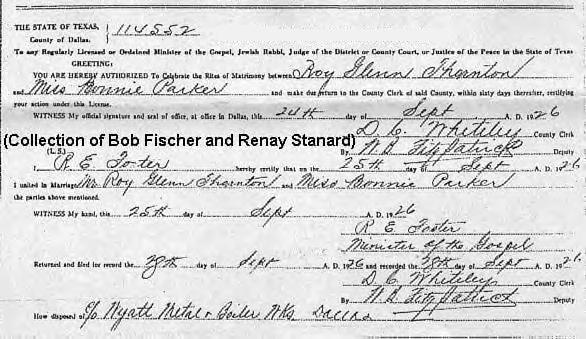 THE STATE OF TEXAS, 114552
County of Dallas.
To any Regularly Licensed or Ordained Minister of the Gospel, Jewish Rabbi, Judge of the District or County Court, or Justice of the Peace in the State of Texas
GREETING:
YOU ARE HEREBY AUTHORIZED To Celebrate the Rites of Matrimony between Roy Glenn Thornton
and Miss Bonnie Parker and make due return to the County Clerk of said County, within sixty days thereafter, certifying
your action under this License.
WITNESS My official signature and seal of office, at office in Dallas, this 24th day of Sept A. D. 1926
D. C. Whiteley County Clerk
(Collection of Bob Fischer and Renay Stanard)
(L.S.) By W. B. Fitzpatrick Deputy
I, R. E. Foster hereby certify that on the 25th day of Sept A. D. 1926
I united in Marriage Mr Roy Glenn Thornton and Miss Bonnie Parker
the parties above mentioned.
WITNESS My hand, this 25th day of Sept A. D. 1926
R. E. Foster
Minister of the Gospel
Returned and filed for record the 28th day of Sept A. D. 1926 and recorded the 28th day of Sept A. D. 1926
D. C. Whiteley County Clerk
By W. B. Fitzpatrick Deputy
How disposed of c/o Wyatt Metal & Boiler Wks, Dallas